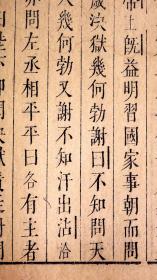 旣益明習國家事朝而問
歲決獄幾何勃謝曰不知問天
入幾何勃又謝不知汗出沾洽
亦問左丞相平平曰各有主者